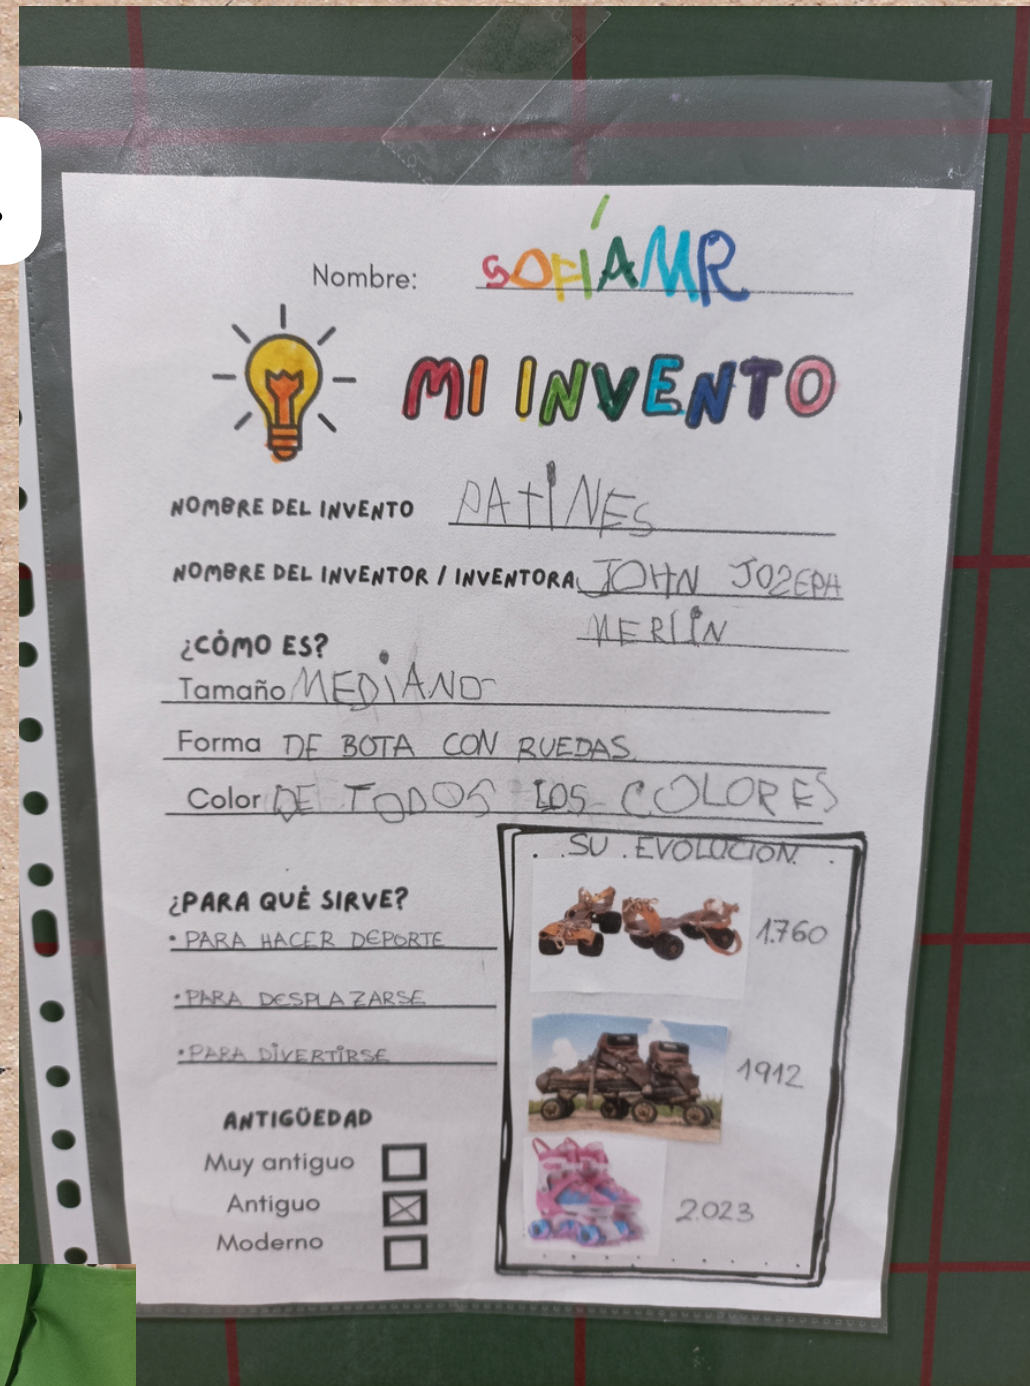 Nombre: SOFÍA MR
MI INVENTO
NOMBRE DEL INVENTO PATINES
NOMBRE DEL INVENTOR / INVENTORA JOHN JOZEPH
MERLIN
¿CÓMO ES?
Tamaño MEDIANO
Forma DE BOTA CON RUEDAS
Color DE TODOS LOS COLORES
¿PARA QUÉ SIRVE?
• PARA HACER DEPORTE
• PARA DESPLAZARSE
• PARA DIVERTIRSE
ANTIGÜEDAD
Muy antiguo
Antiguo
Moderno
SU EVOLUCIÓN
1.760
1912
2.023